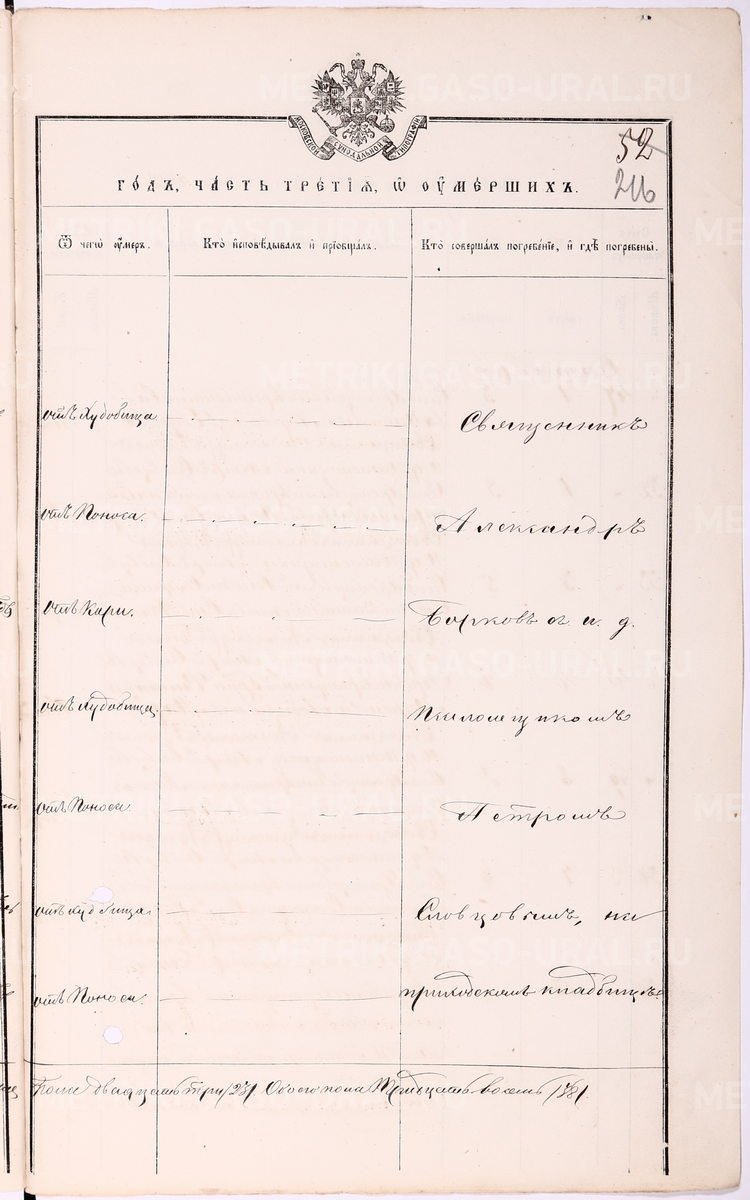 METRIKI.GASO-URAL.RU
МОСКОВСКОЙ СѴНОДАЛЬНОЙ ТИПОГРАФІИ
52
216
ГО́ДЪ, ЧА́СТЬ ТРЕ́ТІѦ, Ѡ҆ ОУ҆МЕ́РШИХЪ.
Ѿ чегѡ̀ ᲂу҆́меръ.
Кто̀ и҆сповѣ́дывалъ и҆ прїѡбща́лъ.
Кто̀ соверша́лъ погребе́нїе, и҆ гдѣ̀ погребены̀.
отъ Худобища
Священникъ
отъ Поноса.
Александръ
отъ Кори.
Борковъ и. д.
отъ Худобища.
Псаломщикомъ
отъ Поноса
Петромъ
отъ худобища.
Словцовымъ, на
отъ Поноса.
приходскомъ кладбищѣ.
Пола двадцать три /23/. Обоего пола Тридцать восемь /38/.